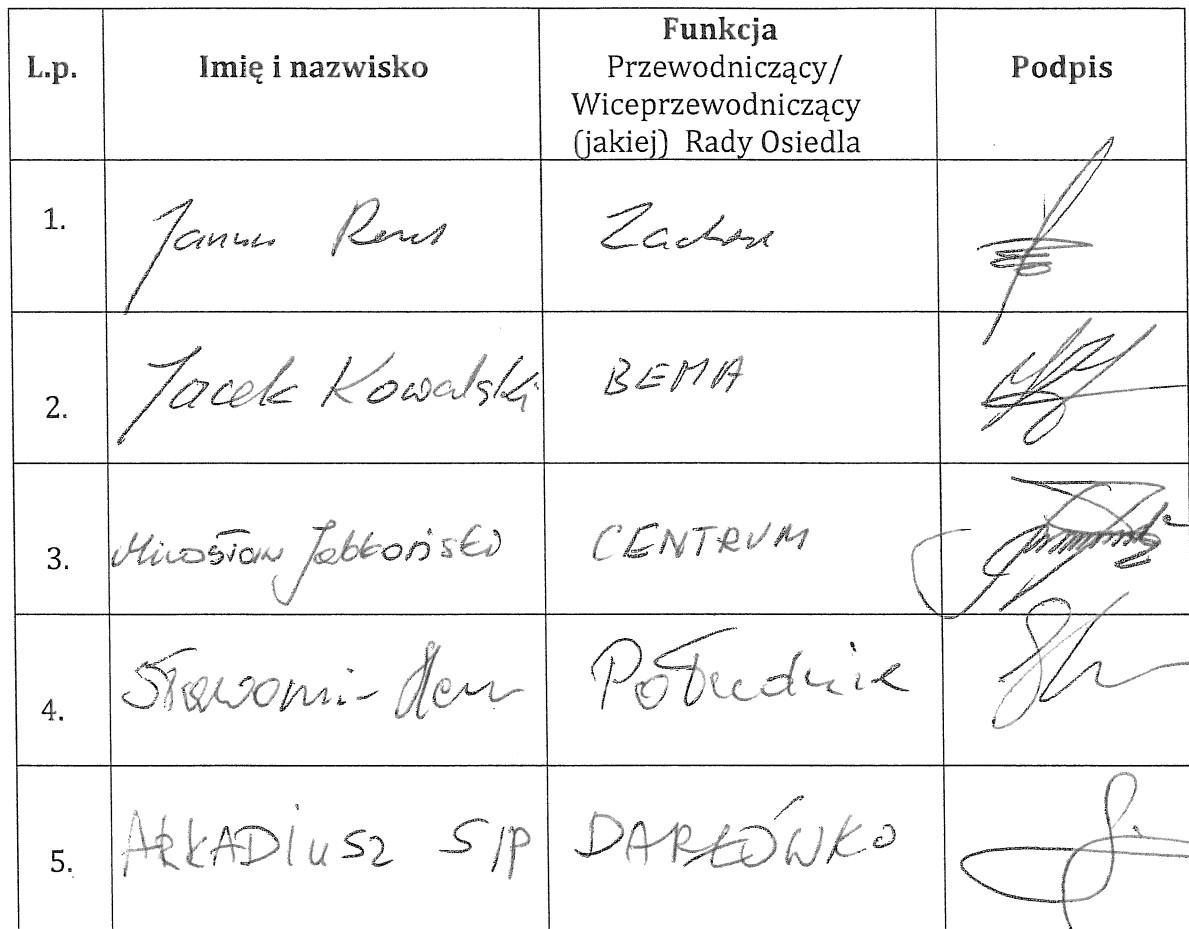 L.p.
Imię i nazwisko
Funkcja
Przewodniczący/
Wiceprzewodniczący
(jakiej) Rady Osiedla
Podpis
1.
2. Jacek Kowalski BEMA
3. Mirosław Jabłoński CENTRUM
4. Sławomir Południe
5. ARKADIUSZ SIP DARŁÓWKO